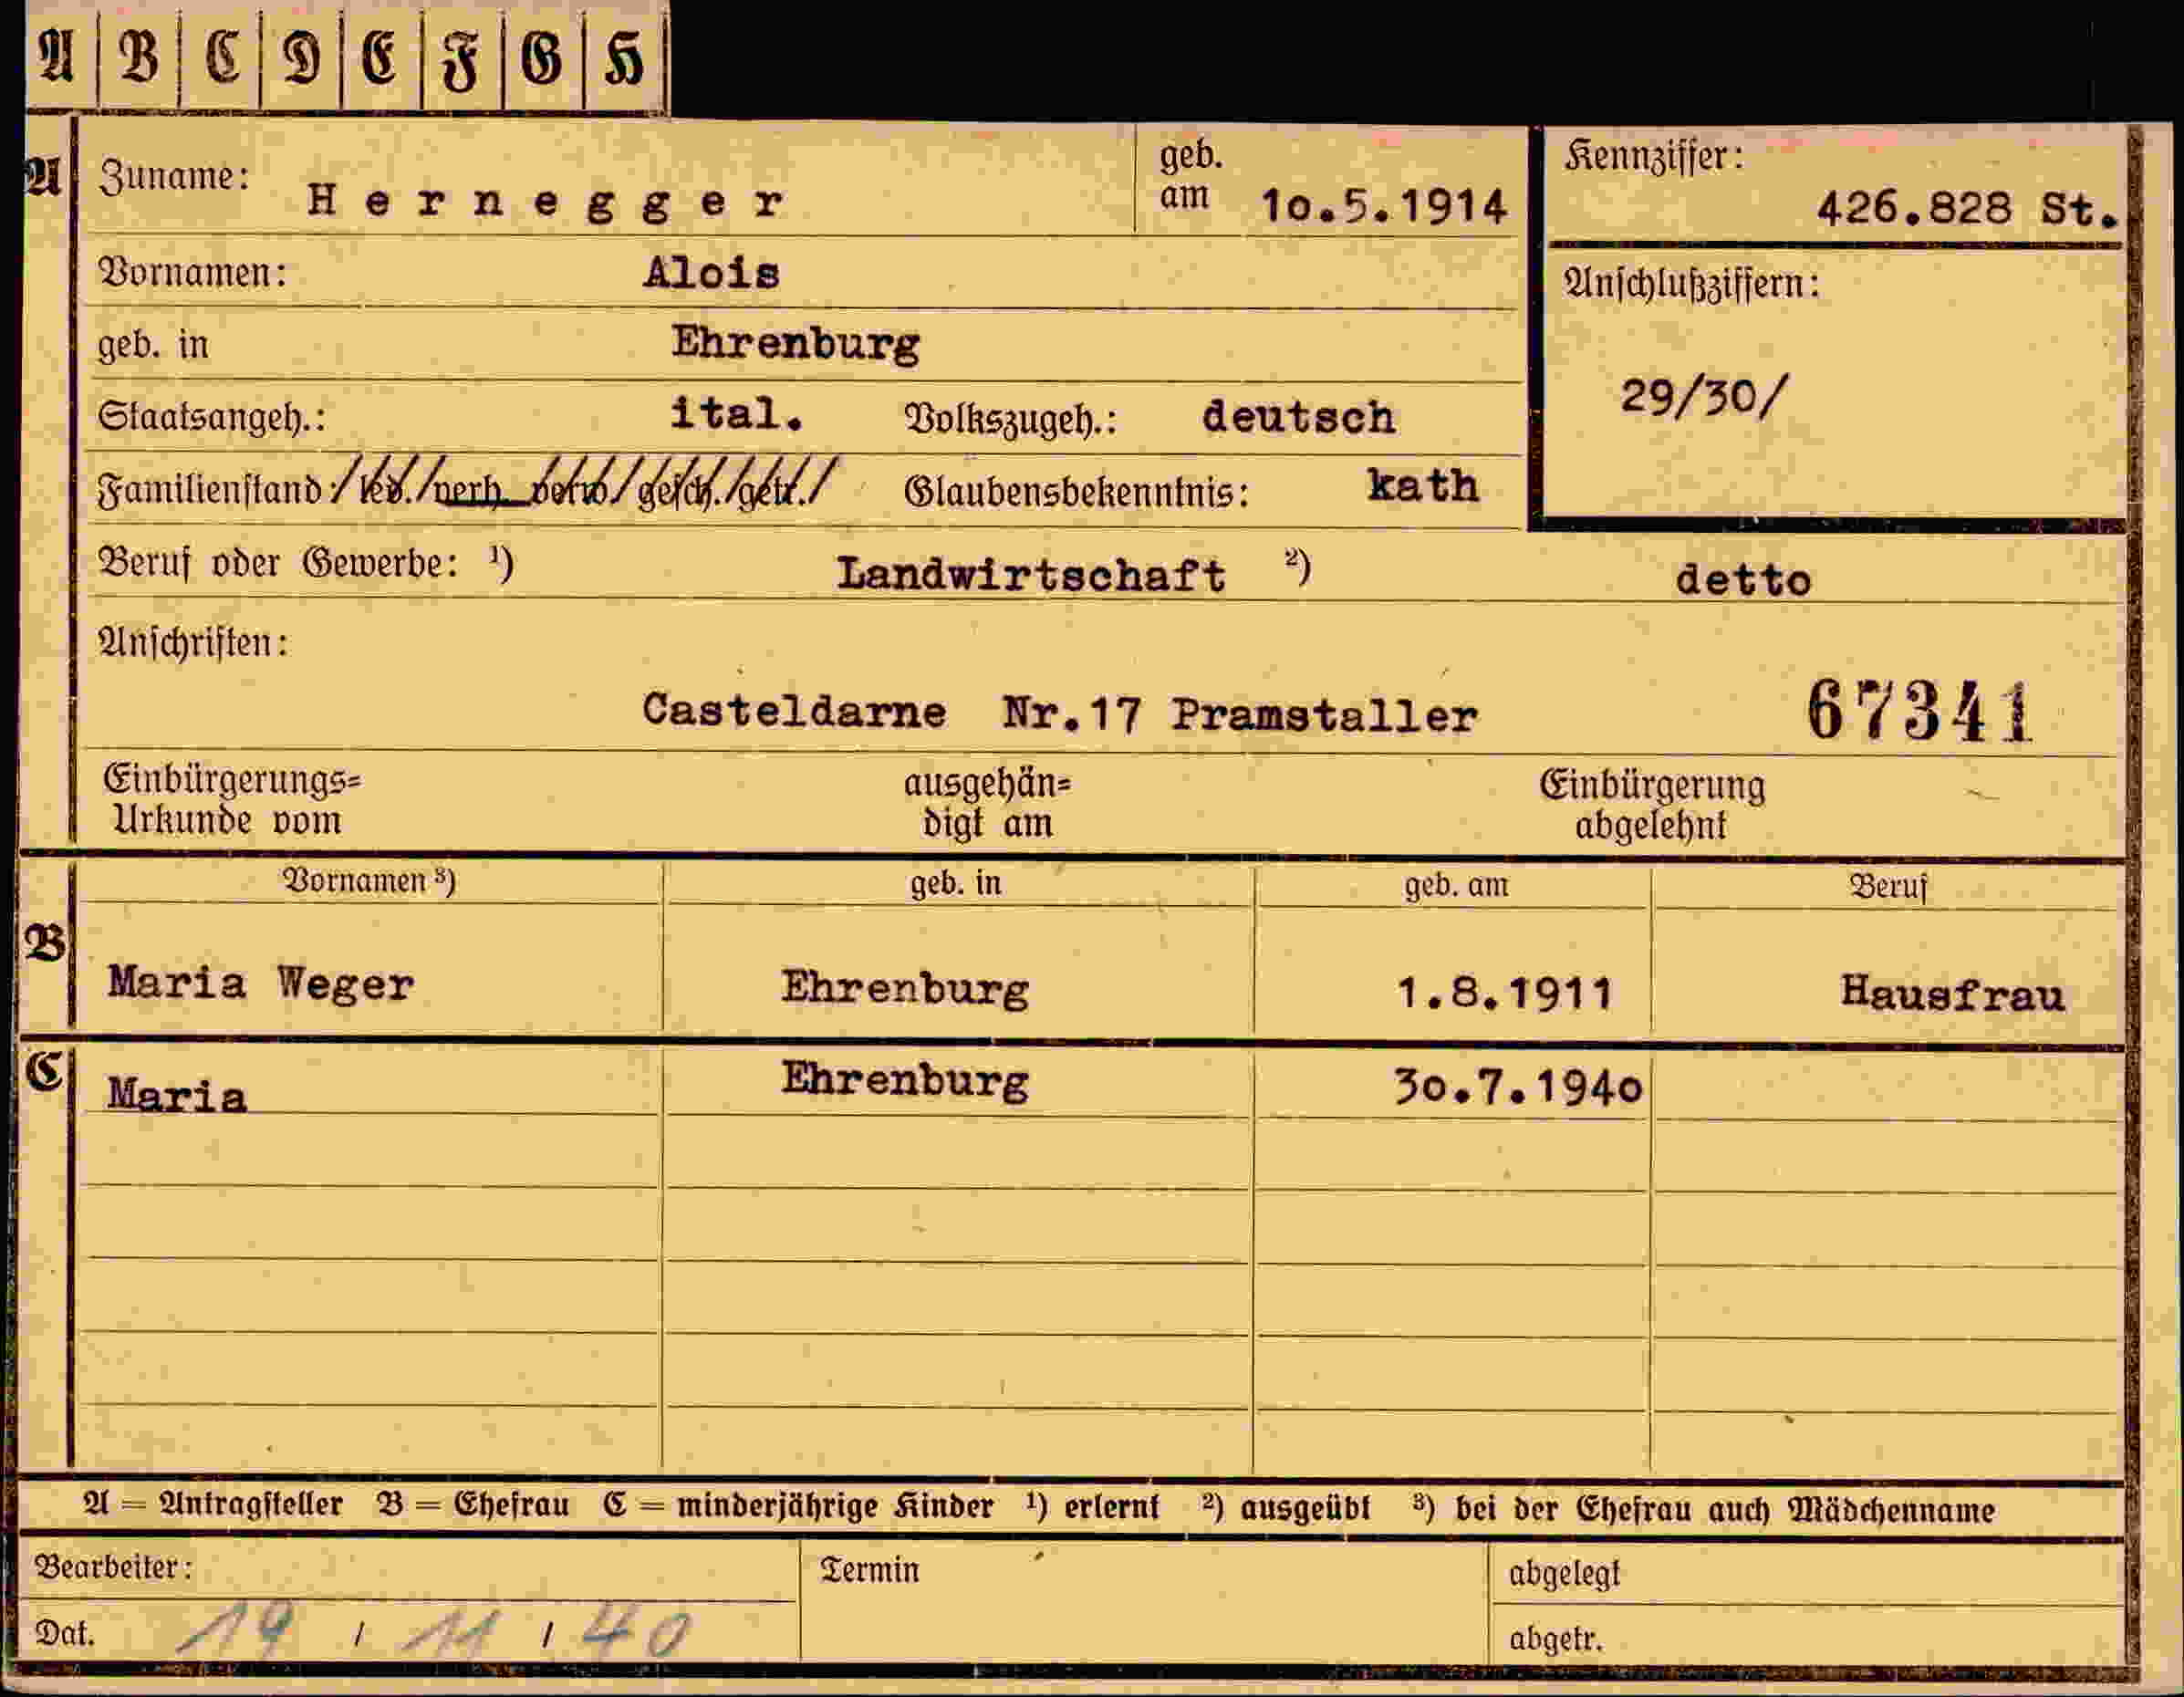 A B C D E F G H
A Zuname: Hernegger geb. am 10.5.1914 Kennziffer: 426.828 St.
Vornamen: Alois
Anschlußziffern:
geb. in Ehrenburg
Staatsangeh.: ital. Volkszugeh.: deutsch 29/30/
Familienstand: /led./verh. verw/gesch./getr./ Glaubensbekenntnis: kath
Beruf oder Gewerbe: ¹) Landwirtschaft ²) detto
Anschriften:
Casteldarne Nr.17 Pramstaller 67341
Einbürgerungs= ausgehän= Einbürgerung
Urkunde vom digt am abgelehnt
Vornamen ³) geb. in geb. am Beruf
B Maria Weger Ehrenburg 1.8.1911 Hausfrau
C Maria Ehrenburg 30.7.1940
A = Antragsteller B = Ehefrau C = minderjährige Kinder ¹) erlernt ²) ausgeübt ³) bei der Ehefrau auch Mädchenname
Bearbeiter: Termin abgelegt
Dat. 19 / 11 / 40 abgetr.